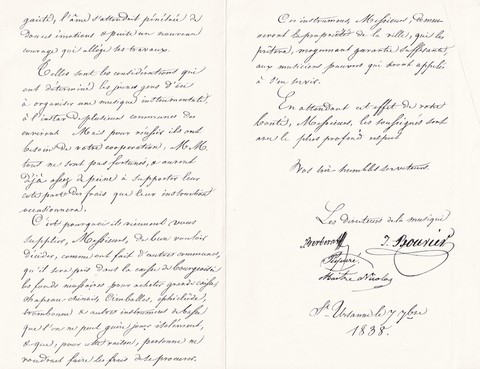 gaité, l'âme s'attendrit pénétrée de
douces émotions & puise un nouveau
courage qui allège ses travaux.
Telles sont les considérations qui
ont déterminé les jeunes gens d'ici
à organiser une musique instrumentale,
à l'instar de plusieurs communes des
environs. Mais pour réussir ils ont
besoin de votre coopération, MM.
tous ne sont pas fortunés, & auront
déjà assez de peine à supporter leur
cote part des frais que leur instruction
occasionnera.
C'est pourquoi ils viennent vous
supplier, Messieurs, de bien vouloir
décider, comme ont fait d'autres communes,
qu'il sera pris dans la caisse de bourgeoisie
les fonds nécessaires pour acheter grande caisse,
chapeau chinois, Cimballes, ophicléide,
trombonne & autres instrumens de basse
que l'on ne peut guère jouer isolément,
& que, pour cette raison, personne ne
voudrait faire les frais de se procurer.
Ces instrumens, Messieurs, demeu
reront la propriété de la ville, qui les
prêtera, moyennant garantie suffisante,
aux musiciens pauvres qui seront appelés
à s'en servir.
En attendant cet effet de votre
bonté, Messieurs, les soussignés sont
avec le plus profond respect
Vos très humbles serviteurs.
Les directeurs de la musique
J. Bouvier
Maître Nicolas
St Ursanne le 7 7bre
1838.